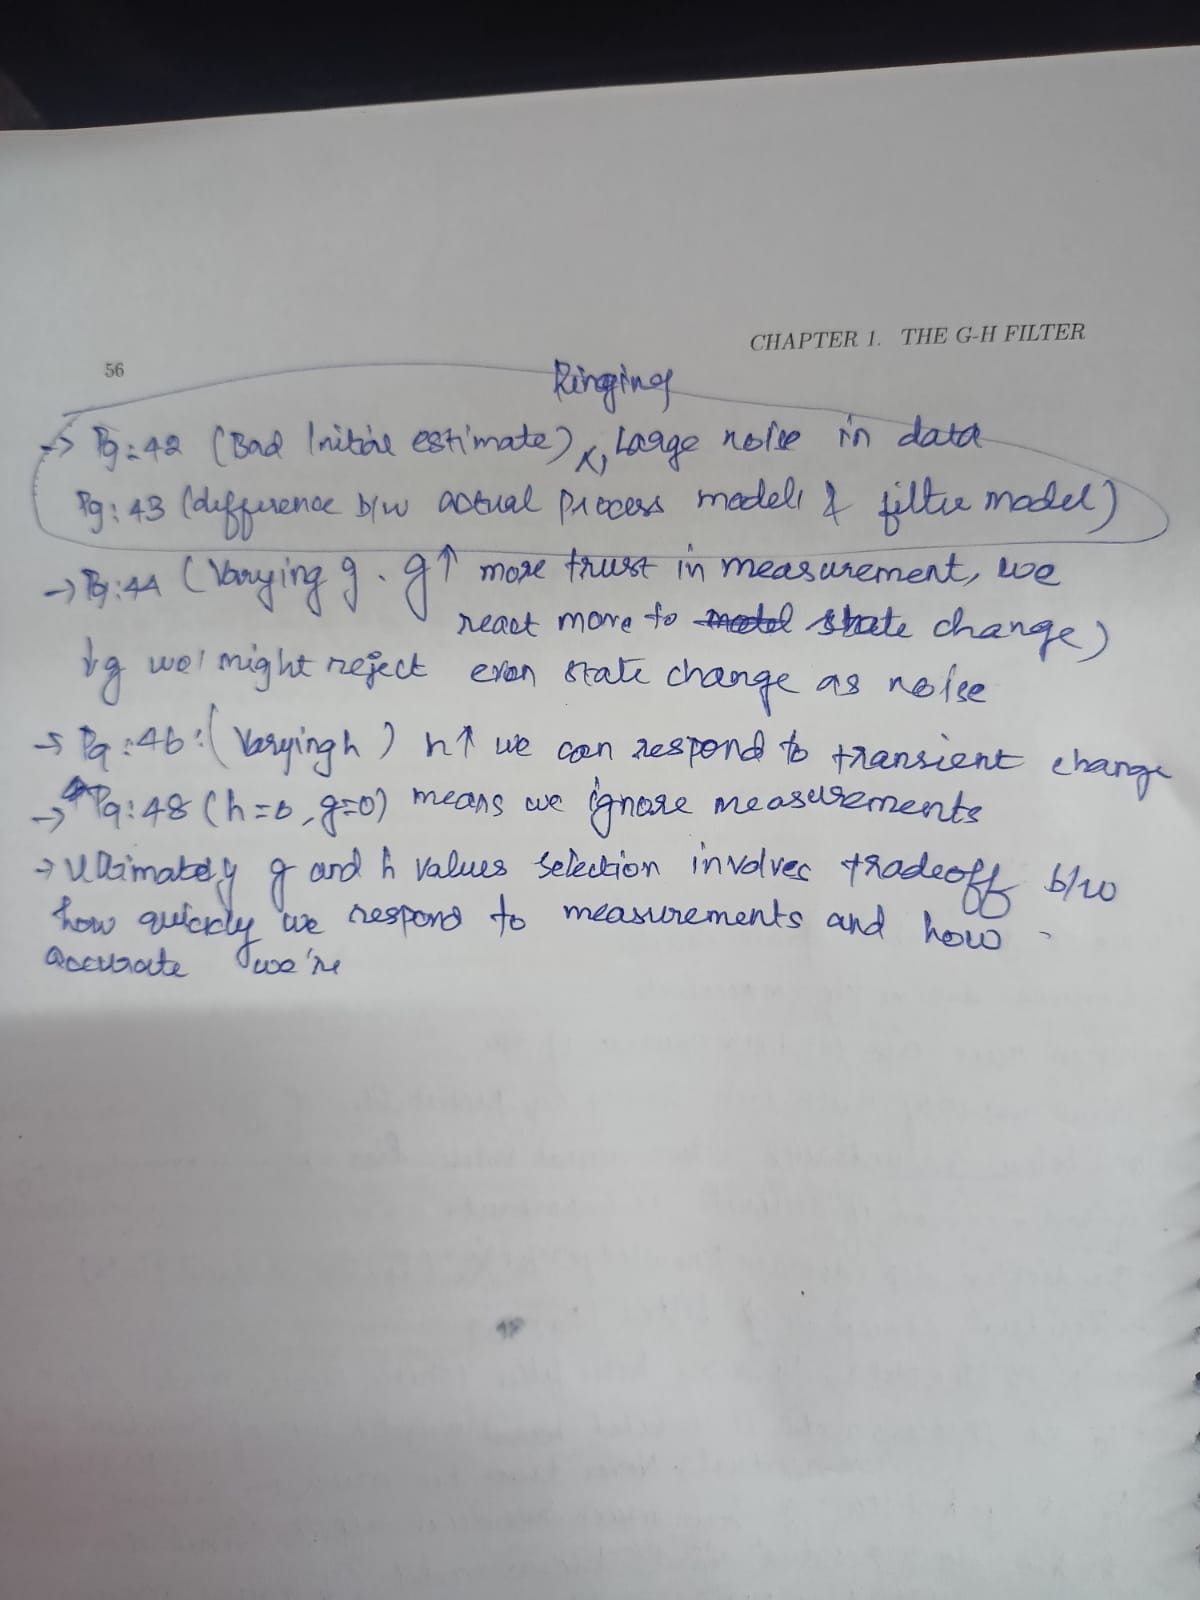 56
CHAPTER 1. THE G-H FILTER
Ringing
→ Pg:42 (Bad Initial estimate), Large noise in data
Pg:43 (difference b/w actual process model & filter model)
→ Pg:44 (Varying g. g↑ more trust in measurement, we
react more to model state change)
↓g we might reject even state change as noise
→ Pg:46:(Varying h) h↑ we can respond to transient change
→ Pg:48 (h=0, g=0) means we ignore measurements
→ Ultimately g and h values selection involves tradeoff b/w
how quickly we respond to measurements and how
accurate we're